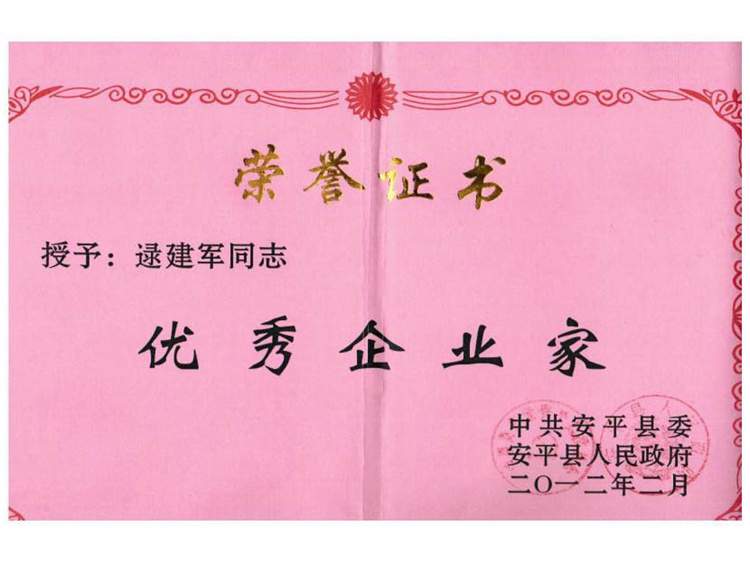 荣誉证书
授予：逯建军同志
优秀企业家
中共安平县委
安平县人民政府
二〇一二年二月